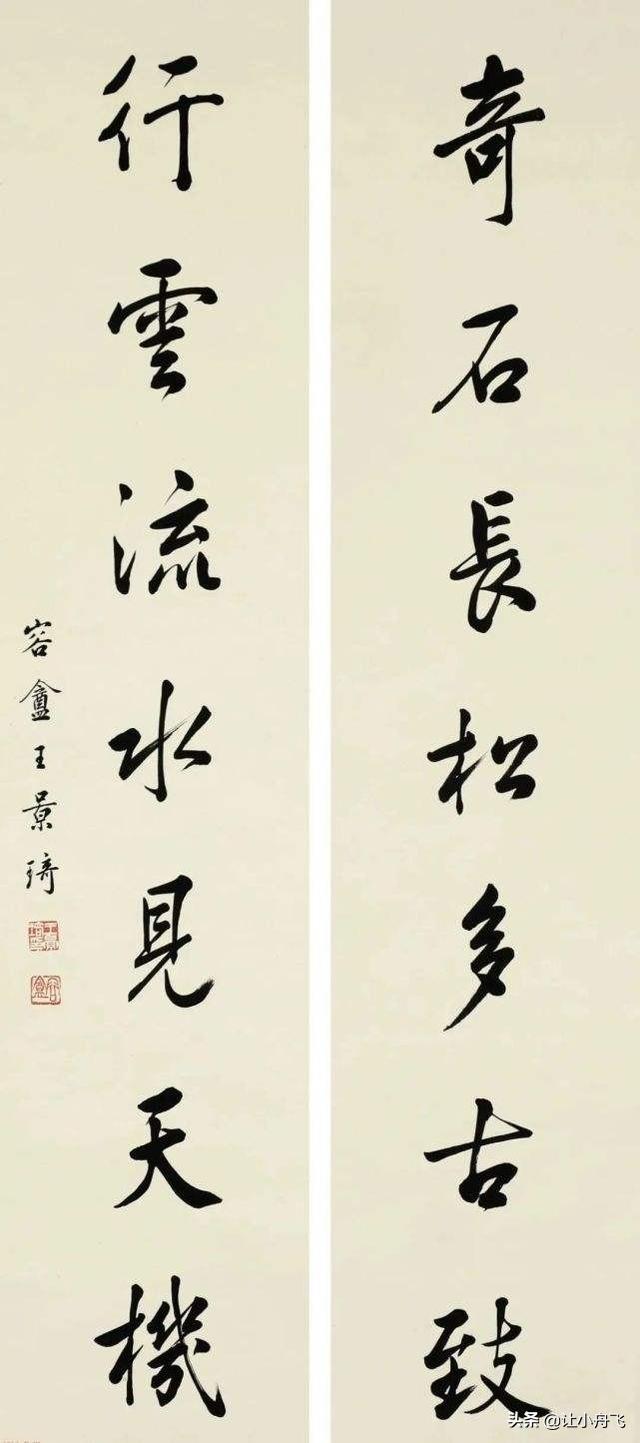 奇石長松多古致
行雲流水見天機
容盦王景琦
头条@让小舟飞